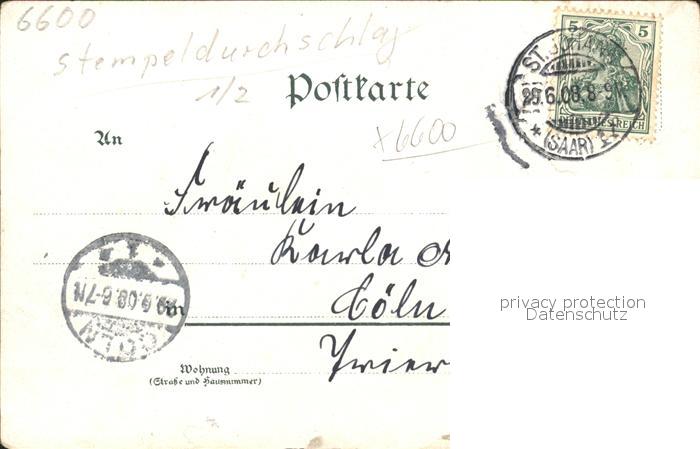 6600
Stempeldurchschlag
1/2
Postkarte
x6600
An
Fräulein
Karla
in Cöln
Trier
Wohnung
(Straße und Hausnummer)
5 5
ST. JOHANN
29.6.08.8-9N
* (SAAR) 1
DEUTSCHES REICH
CÖLN
6.08.6-7N
privacy protection
Datenschutz